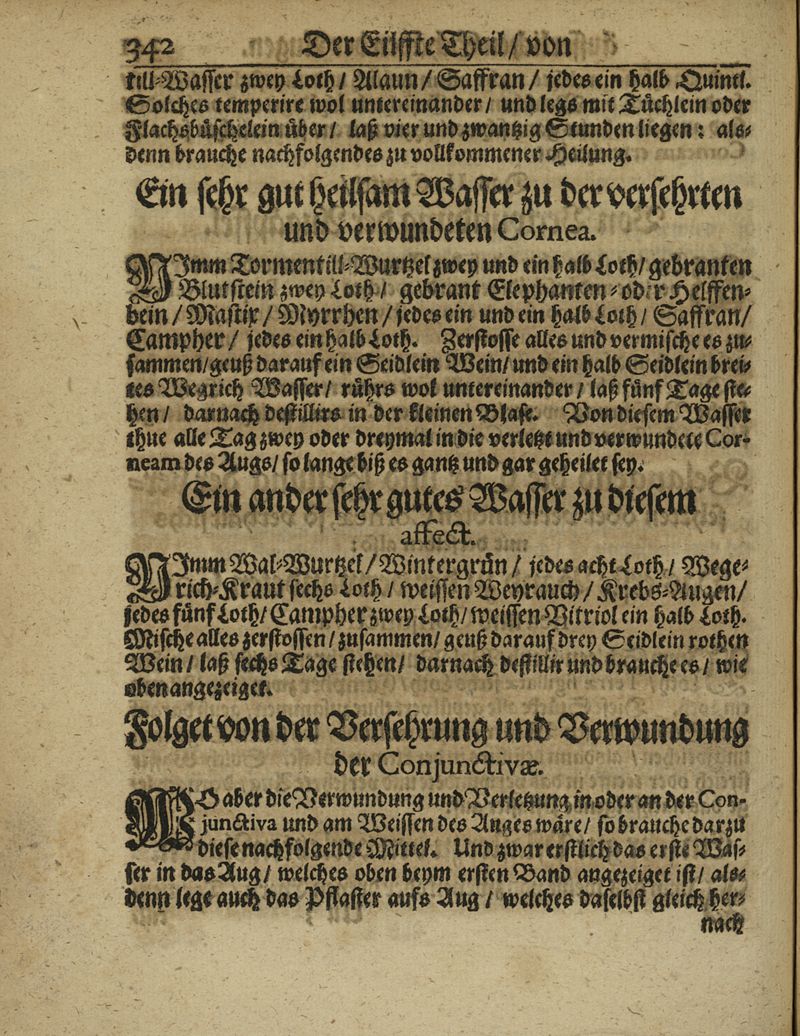 342 Der Eilffte Theil / von
till-Wasser zwey Loth / Alaun / Saffran / jedes ein halb Quintl.
Solches temperire wol untereinander / und legs mit Tüchlein oder
Flachsbüschelein über / laß vier und zwantzig Stunden liegen: als-
denn brauche nachfolgendes zu vollkommener Heilung.
Ein sehr gut heilsam Wasser zu der versehrten
und verwundeten Cornea.
NImm Tormentill-Wurtzel zwey und ein halb Loth / gebranten
Blutstein zwey Loth / gebrant Elephanten- oder Helffen-
bein / Mastix / Myrrhen / jedes ein und ein halb Loth / Saffran /
Campher / jedes ein halb Loth. Zerstosse alles und vermische es zu-
sammen / geuß darauf ein Seidlein Wein / und ein halb Seidlein brei-
tes Wegrich Wasser / rührs wol untereinander / laß fünf Tage ste-
hen / darnach destillirs in der kleinen Blase. Von diesem Wasser
thue alle Tag zwey oder dreymal in die verletzt und verwundete Cor-
neam des Augs / so lange biß es gantz und gar geheilet sey.
Ein ander sehr gutes Wasser zu diesem
affect.
NImm Wal-Wurtzel / Wintergrün / jedes acht Loth / Wege-
rich-Kraut sechs Loth / weissen Weyrauch / Krebs-Augen /
jedes fünf Loth / Campher zwey Loth / weissen Vitriol ein halb Loth.
Mische alles zerstossen / zusammen / geuß darauf drey Seidlein rothen
Wein / laß sechs Tage stehen / darnach destillir und brauche es / wie
oben angezeiget.
Folget von der Versehrung und Verwundung
der Conjunctivæ.
WO aber die Verwundung und Verletzung in oder an der Con-
junctiva und am Weissen des Auges wäre / so brauche darzu
diese nachfolgende Mittel. Und zwar erstlich das erste Was-
ser in das Aug / welches oben beym ersten Band angezeiget ist / als-
denn lege auch das Pflaster aufs Aug / welches daselbst gleich her-
nach